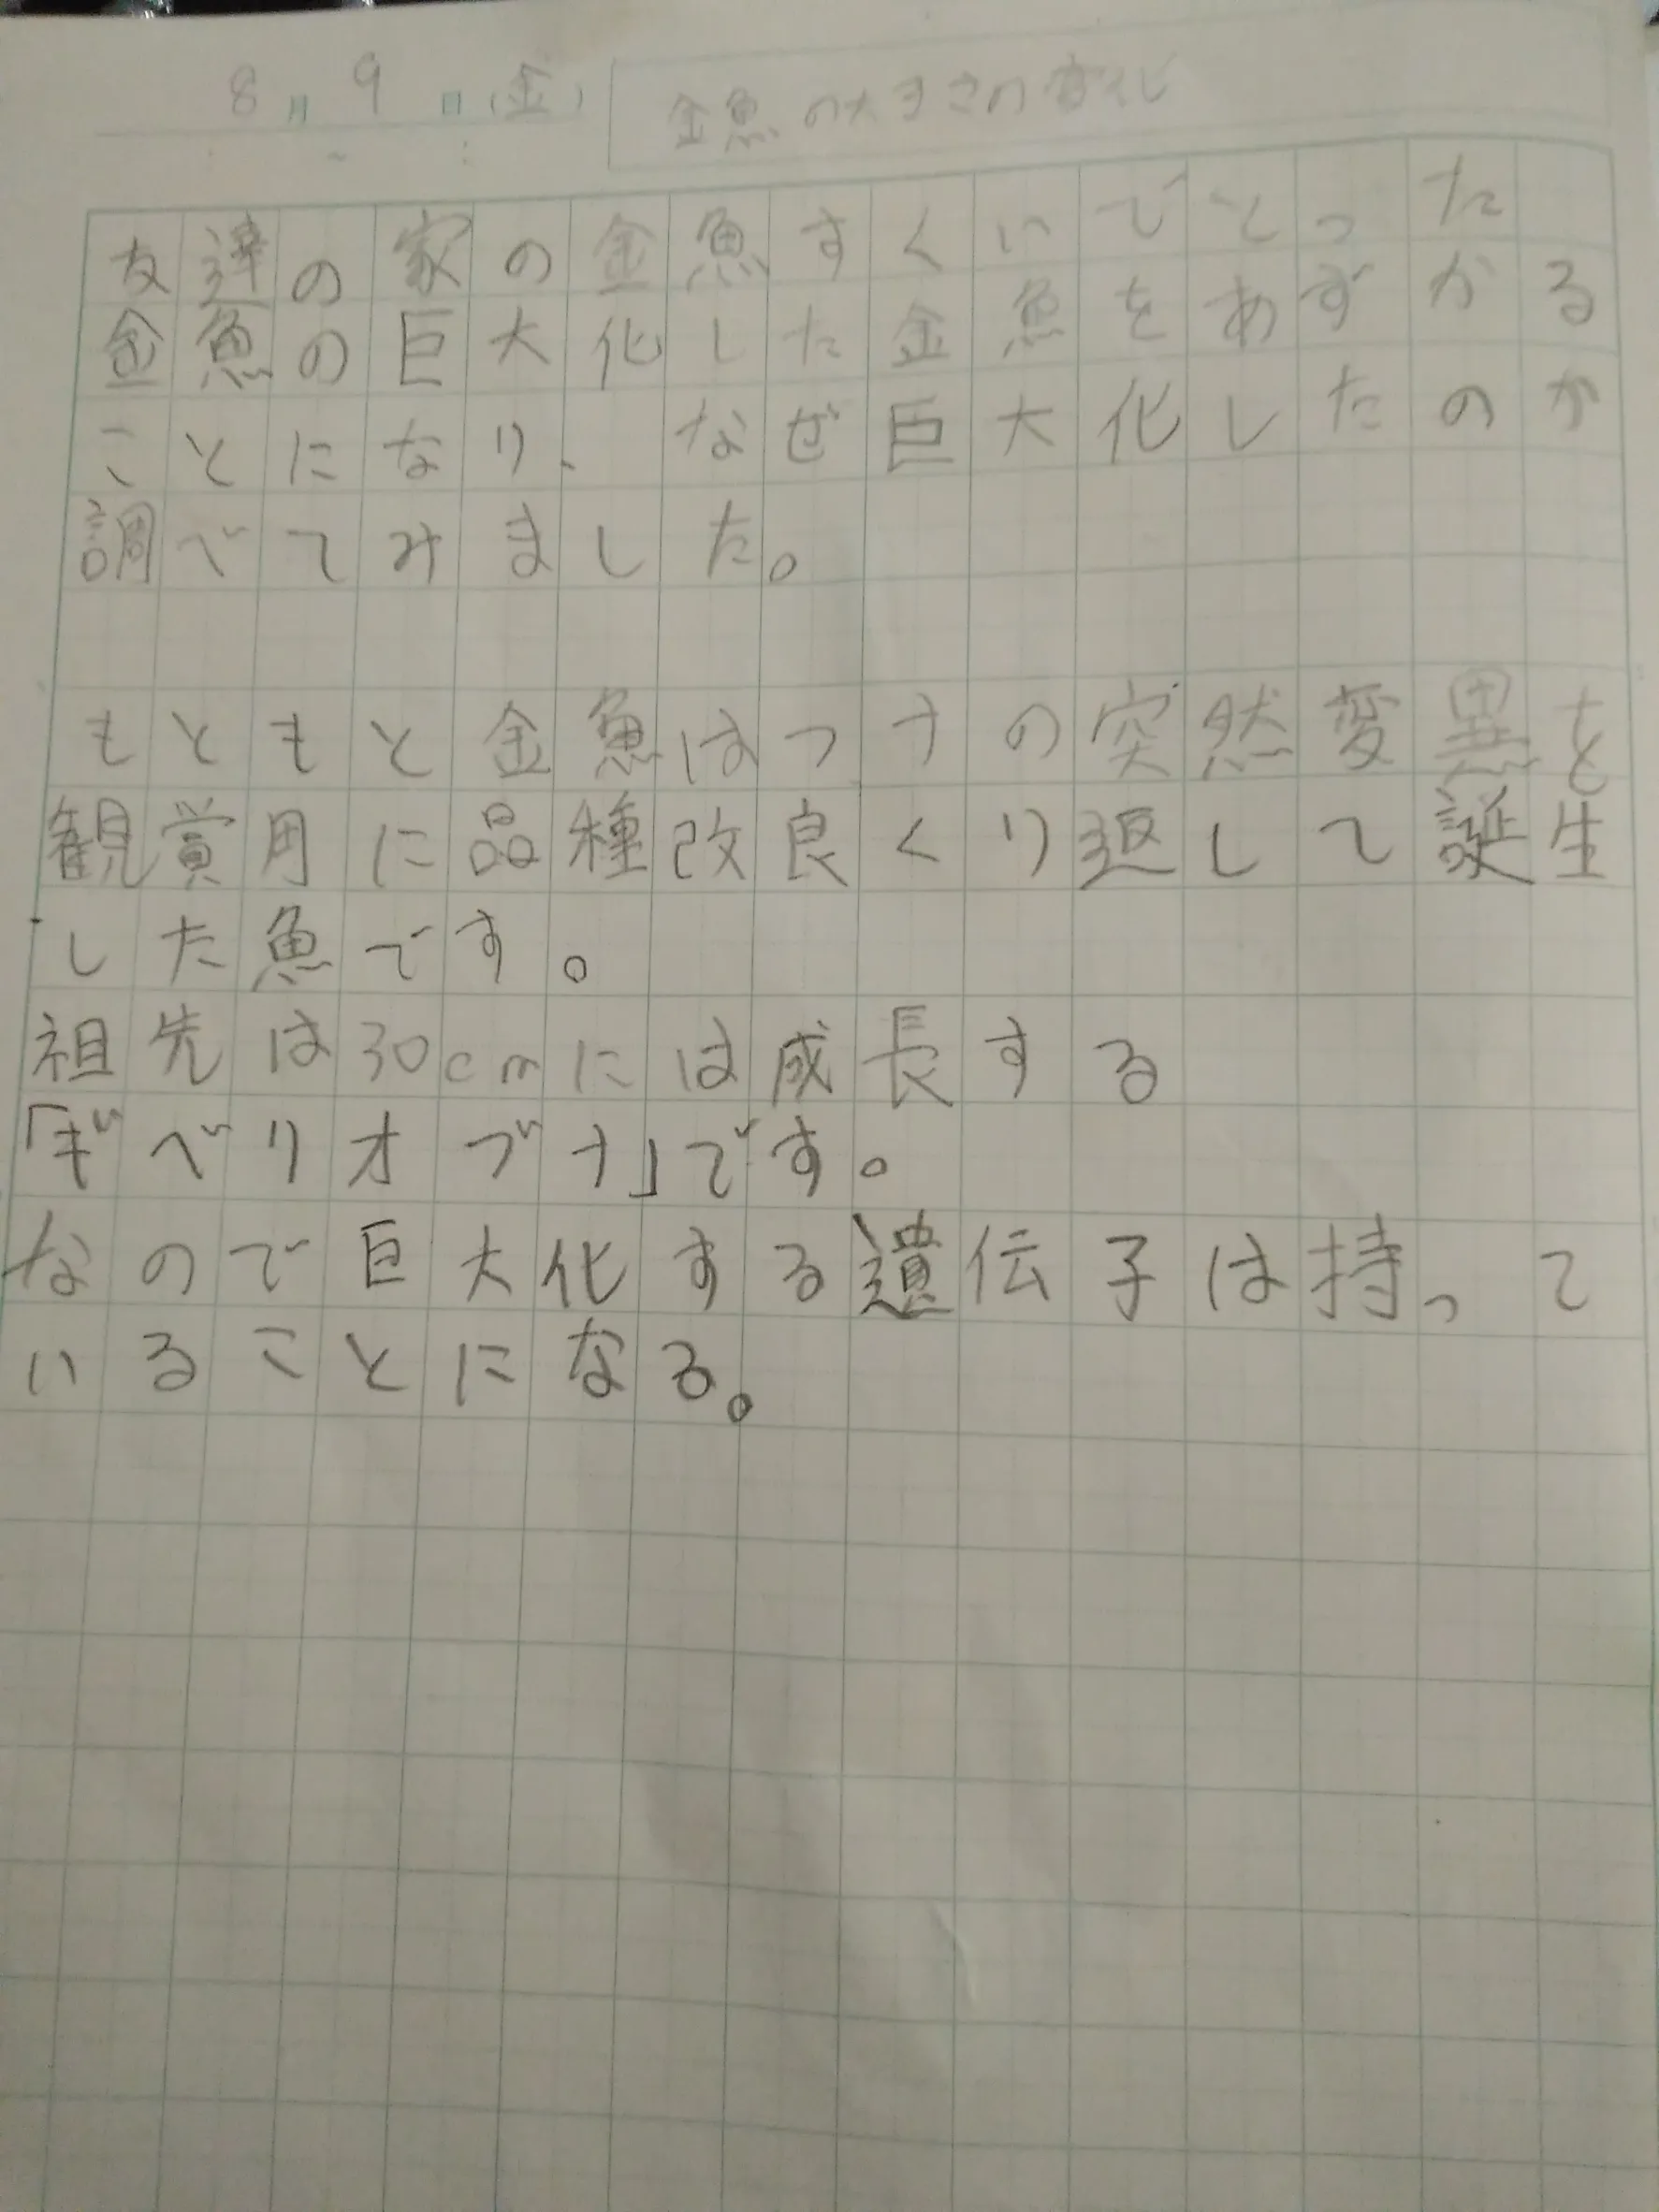 8月9日(金) 金魚の大きさの変化
友達の家の金魚すくいでとった
金魚の巨大化した金魚をあずかる
ことになり、なぜ巨大化したのか
調べてみました。
もともと金魚はフナの突然変異を
観賞用に品種改良くり返して誕生
した魚です。
祖先は30cmには成長する
「ギベリオブナ」です。
なので巨大化する遺伝子は持って
いることになる。